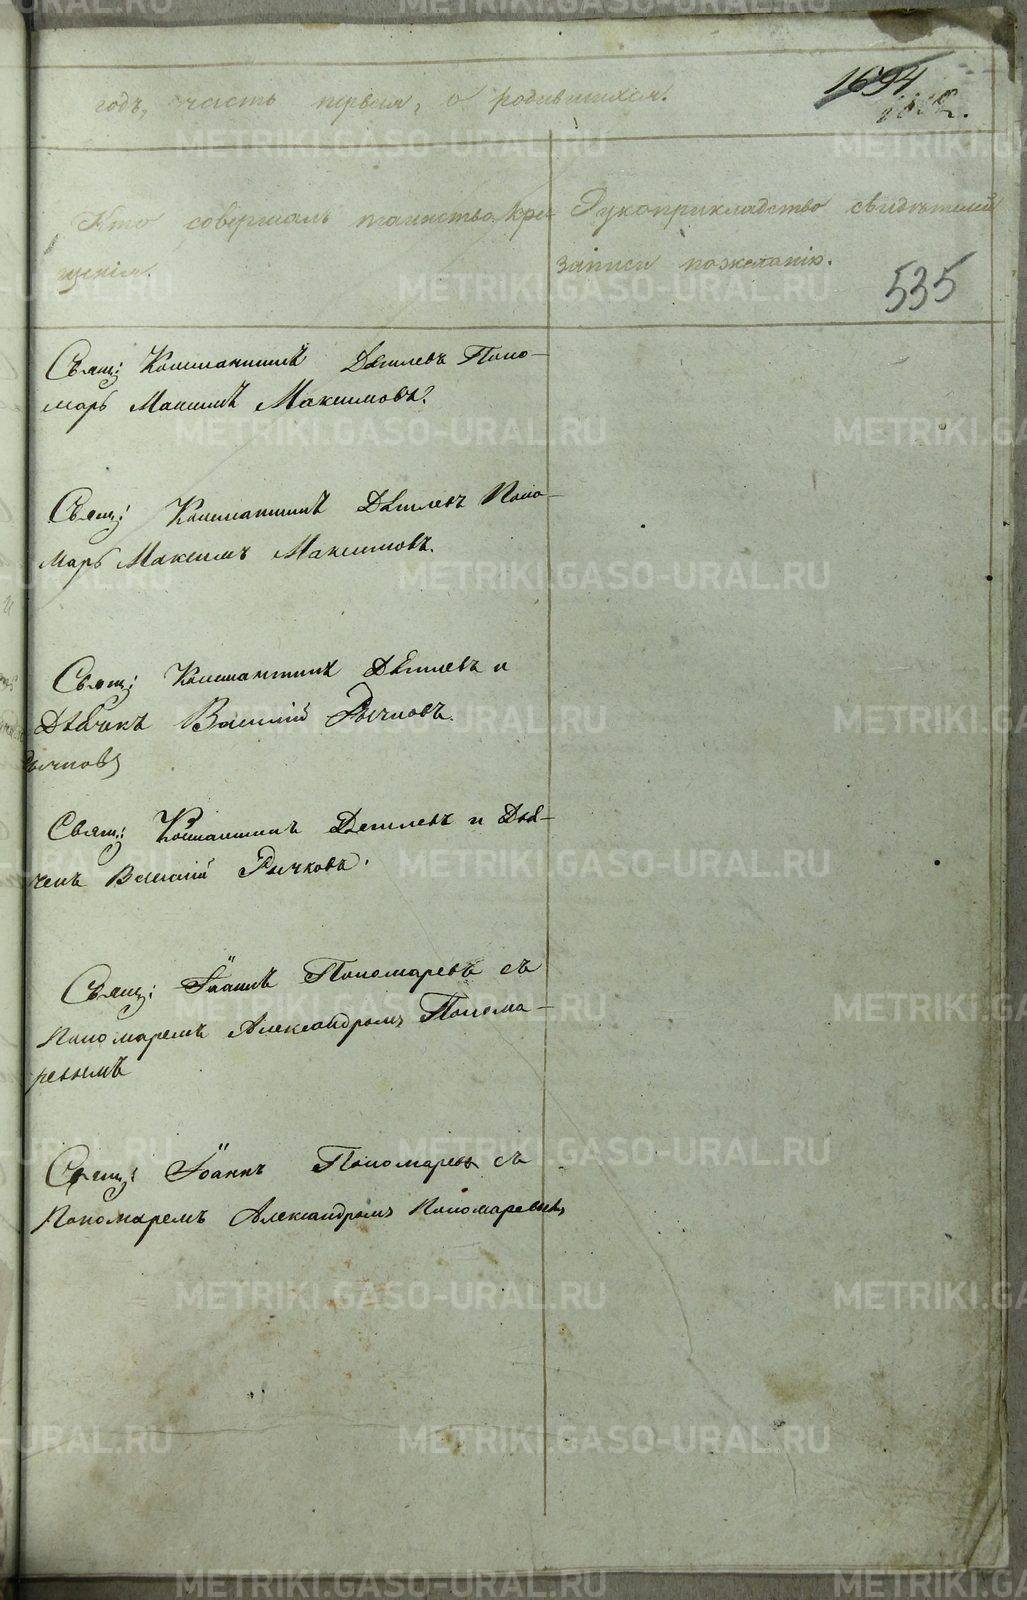 годъ, часть первая, о родившихся.
1694
Кто совершалъ таинство кре-
щенія.
Рукоприкладство свидѣтелей
записи по желанію.
535
Свящ: Констатинъ Дѣтлевъ Поно-
марь Максимъ Максимовъ.
Свящ: Констатинъ Дѣтлевъ Поно-
марь Максимъ Максимовъ.
Свящ: Константинъ Дѣтлевъ и
Дьячекъ Василій Рычковъ.
Свящ: Констатинъ Детлевъ и Дья-
чекъ Василій Рычковъ.
Свящ: Іоаннъ Пономаревъ съ
Пономаремъ Александромъ Понома-
ревымъ
Свящ: Іоаннъ Пономаревъ съ
Пономаремъ Александромъ Пономаревымъ
METRIKI.GASO-URAL.RU